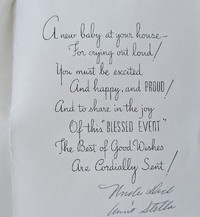 A new baby at your house—
For crying out loud!
You must be excited
And happy, and PROUD!
And to share in the joy
Of this "BLESSED EVENT"
The Best of Good Wishes
Are Cordially Sent!
Uncle
Aunt Stella